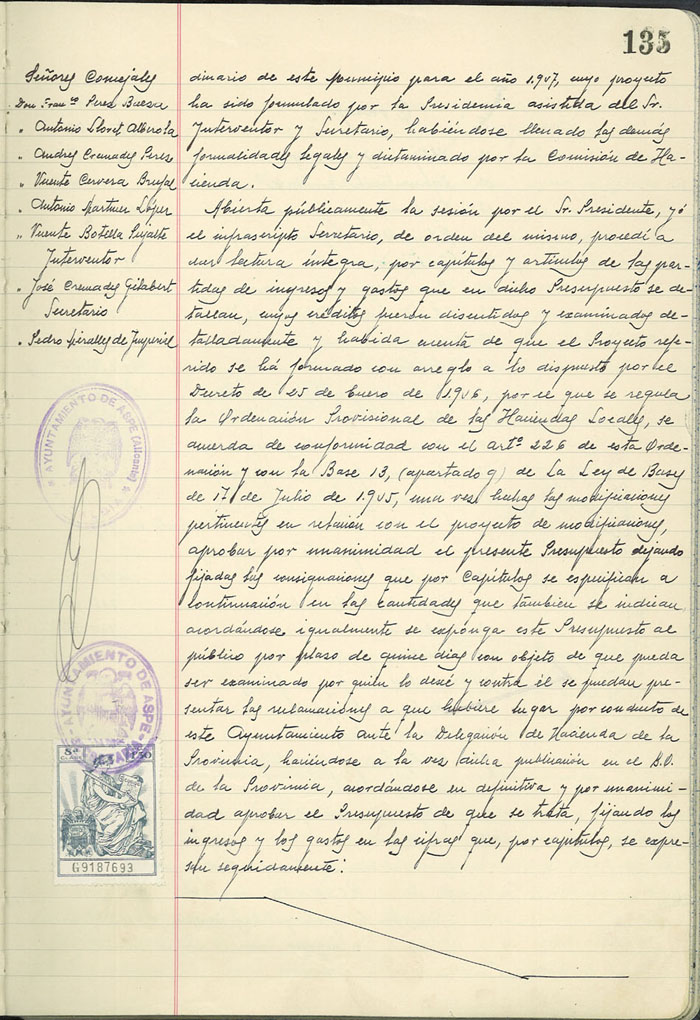 135
Señores Concejales
Don Fran.co Perez Baeza
" Antonio Lloret Alberola
" Andres Cremades Perez
" Vicente Cervera Brufal
" Antonio Martinez López
" Vicente Botella Pujalte
Interventor
" José Cremades Gilabert
Secretario
" Pedro Miralles de Imperial
dinario de este Municipio para el año 1.947, cuyo proyecto
ha sido formulado por la Presidencia asistida del Sr.
Interventor y Secretario, habiéndose llenado las demás
formalidades legales y dictaminado por la Comisión de Ha-
cienda.
Abierta públicamente la sesión por el Sr. Presidente, yó
el infrascripto Secretario, de orden del mismo, procedí a
dar lectura integra, por capítulos y artículos de las par-
tidas de ingresos y gastos que en dicho Presupuesto se de-
tallan, cuyos créditos fueron discutidos y examinados de-
talladamente y habida cuenta de que el Proyecto refe-
rido se há formado con arreglo a lo dispuesto por el
Decreto de 25 de Enero de 1.946, por el que se regula
la Ordenación Provisional de las Haciendas Locales, se
acuerda de conformidad con el artº 226 de esta Orde-
nación y con la Base 13, (apartado g) de La Ley de Bases
de 17 de Julio de 1.945, una vez hechas las modificaciones
pertinentes en relación con el proyecto de modificaciones,
aprobar por unanimidad el presente Presupuesto dejando
fijadas las consignaciones que por Capítulos se especifican a
continuación en las cantidades que tambien se indican
acordándose igualmente se exponga este Presupuesto al
público por plazo de quince dias con objeto de que pueda
ser examinado por quien lo desee y contra él se puedan pre-
sentar las reclamaciones a que hubiere lugar por conducto de
este Ayuntamiento ante la Delegación de Hacienda de la
Provincia, haciéndose a la vez dicha publicación en el B.O.
de la Provincia, acordándose en definitiva y por unanimi-
dad aprobar el Presupuesto de que se trata, fijando los
ingresos y los gastos en las cifras que, por capítulos, se expre-
san seguidamente:
AYUNTAMIENTO DE ASPE (Alicante)
AYUNTAMIENTO DE ASPE
8ª
G9187693